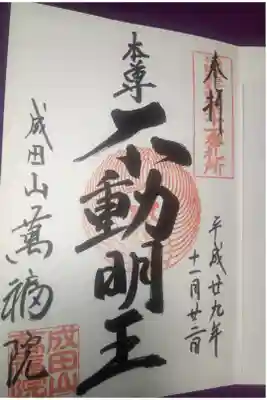 奉拝
平成廿九年
十一月廿二日
本尊
不動明王
成田山萬福院
成田山
萬福院